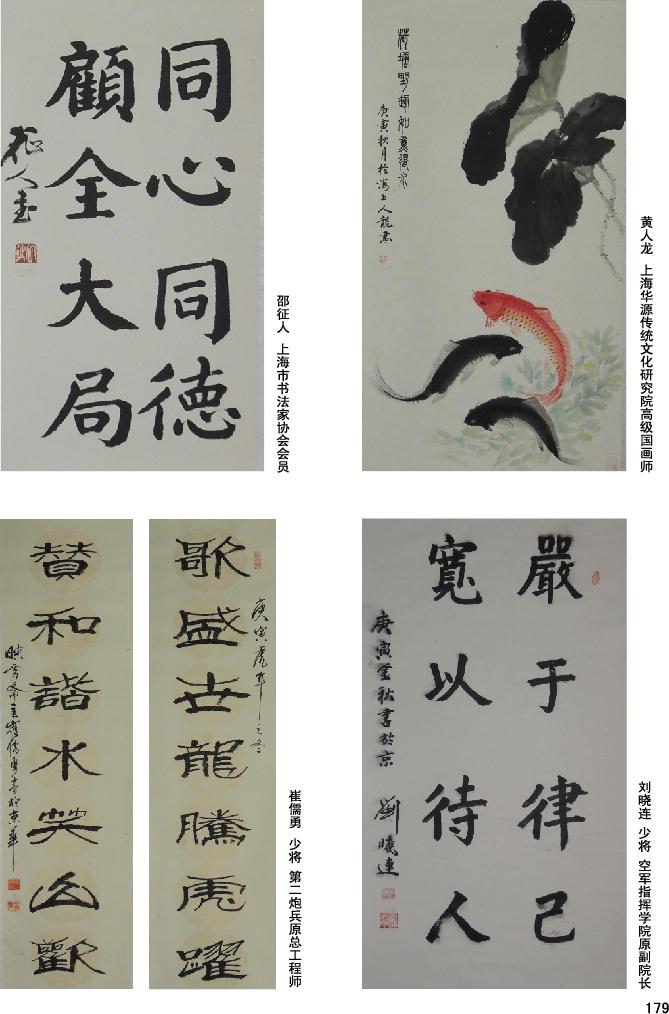 同心同徳
顧全大局
征人書
邵征人 上海市书法家协会会员
荷塘野趣如魚得水
庚寅秋月於海上人龍畫
黄人龙 上海华源传统文化研究院高级国画师
歌盛世龍騰虎躍
庚寅虎年之冬
賛和諧水笑山歡
崔儒勇 少将 第二炮兵原总工程师
嚴于律己
寬以待人
庚寅金秋書於京
劉曉連
刘晓连 少将 空军指挥学院原副院长
179